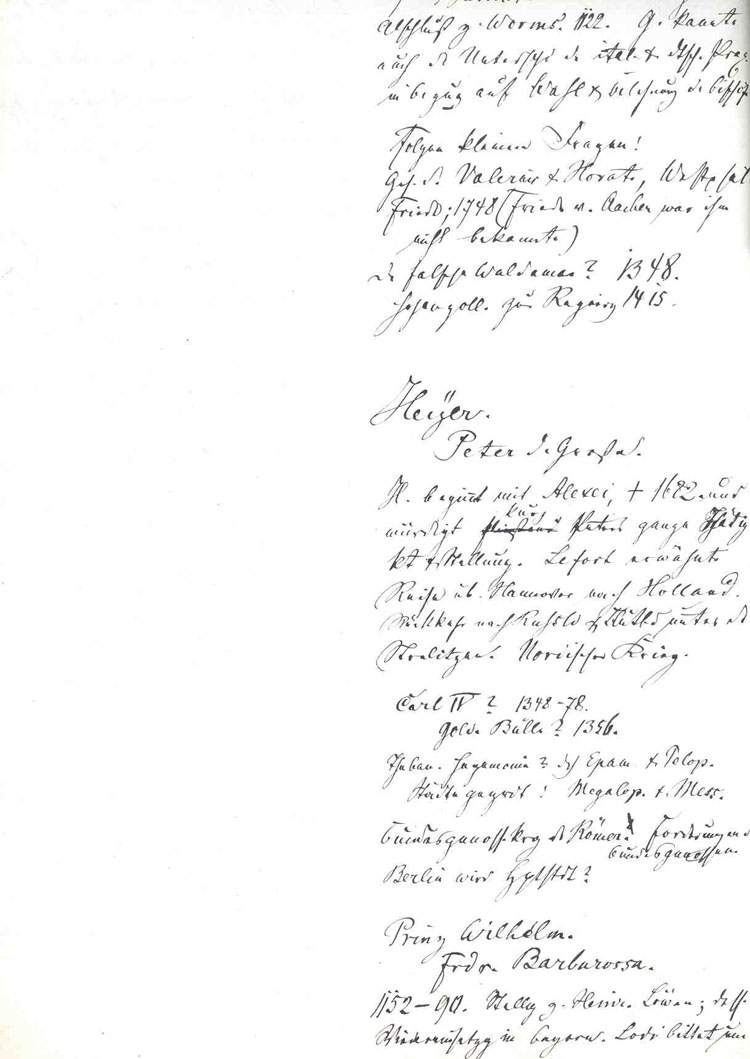 Abschluß z. Worms. 1122. G. kannte
auch de Untersch. de ital. & dtsch. Prax.
in bezug auf Wahl & belehnung de bischöf
Folgen kleinere Fragen!
Ges. d. Valerius & Horat., Westphäl
Friede; 1748 (Friede v. Aachen war ihm
nicht bekannt.)
De falsche Waldemar? 1348.
Hohenzoll. zur Regierg 1415.
Heÿer.
Peter d. Große.
H. beginnt mit Alexei, † 1682 und
würdigt kurz Peters ganze Thätig
kt & Stellung. Lefort erwähnt.
Reise üb. Hannover nach Holland.
Rückkehr nach Rußld &
Strelitzen. Nordischer Krieg.
Carl IV? 1348-78.
Gold. Bulle? 1356.
Theban. Hegemonie? des Epam. & Pelop.
Städte gegrdt! Megalop. & Mess.
Bundesgenoss. Krg de Römer. Forderungen d
bundesgenossen.
Berlin wird Hptstdt?
Prinz Wilhelm.
Frdr. Barbarossa.
1152-90. Stellg z. Heinr. Löwen; dess.
Wiedereinsetzg in bayern. Lodi bittet um